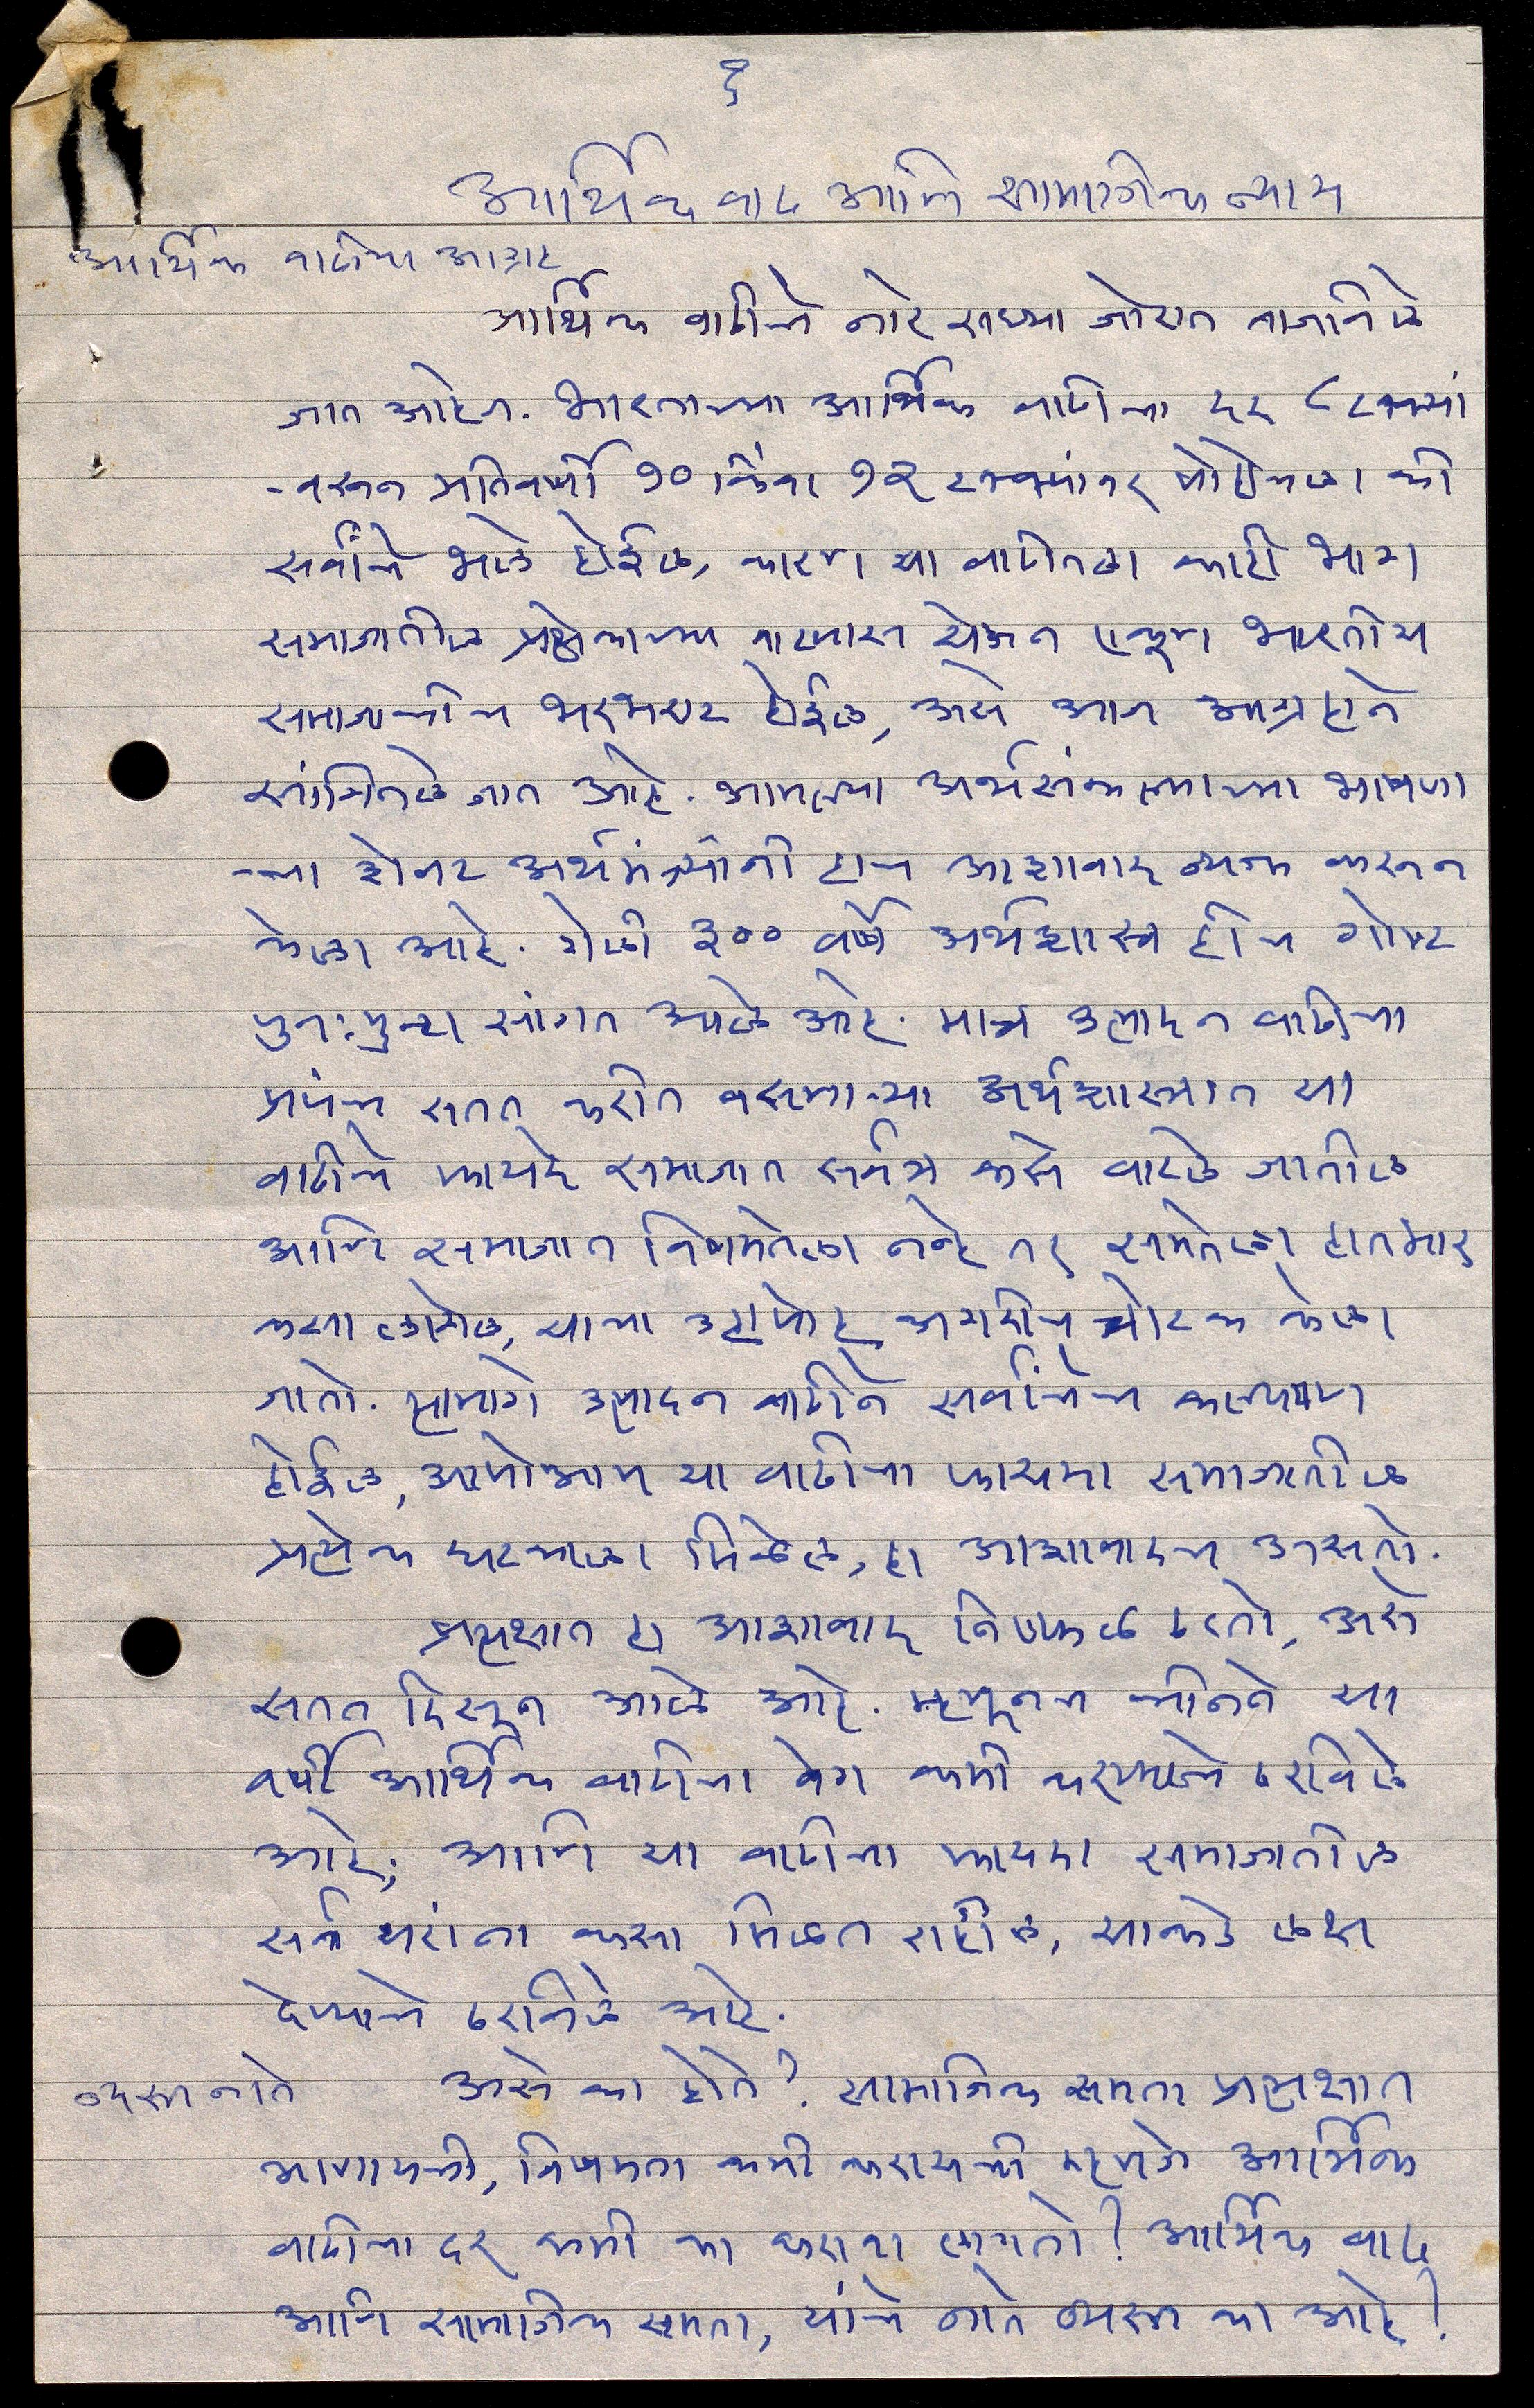 १
आर्थिक वाढ आणि सामाजिक न्याय
आर्थिक वाढीचा आग्रह
आर्थिक वाढीचे नारे सध्या जोरात गाजविले
जात आहेत. भारताच्या आर्थिक वाढीचा दर ८ टक्क्यां
-वरून प्रतिवर्षी १० किंवा १२ टक्क्यांवर पोहोचला की
सर्वांचे भले होईल, कारण या वाढीतला काही भाग
समाजातील प्रत्येकाच्या वाट्यास येऊन एकूण भारतीय
समाजाचीच भरभराट होईल, असे आज आग्रहाने
सांगितले जात आहे. आपल्या अर्थसंकल्पाच्या भाषणा
-च्या शेवट अर्थमंत्र्यांनी हाच आशावाद व्यक्त करून
केला आहे. गेली ३०० वर्षे अर्थशास्त्र हीच गोष्ट
पुनःपुन्हा सांगत आले आहे. मात्र उत्पादन वाढीचा
प्रपंच सतत करीत बसणाऱ्या अर्थशास्त्रात या
वाढीचे फायदे समाजात सर्वत्र कसे वाटले जातील
आणि समाजात विषमतेला नव्हे तर समतेला हातभार
कसा लागेल, याचा उहापोह अगदीच त्रोटक केला
जातो. त्यामागे उत्पादन वाढीने सर्वांचेच कल्याण
होईल, आपोआप या वाढीचा फायदा समाजातील
प्रत्येक घटकाला मिळेल, हा आशावादच असतो.
प्रत्यक्षात हा आशावाद निष्फळ ठरतो, असे
सतत दिसून आले आहे. म्हणूनच चीनने या
वर्षी आर्थिक वाढीचा वेग कमी करण्याचे ठरविले
आहे; आणि या वाढीचा फायदा समाजातील
सर्व थरांना कसा मिळत राहील, याकडे लक्ष
देण्याचे ठरविले आहे.
व्यस्त नाते
असे का होते? सामाजिक समता प्रत्यक्षात
आणायची, विषमता कमी करायची म्हणजे आर्थिक
वाढीचा दर कमी का करावा लागतो? आर्थिक वाढ
आणि सामाजिक समता, यांचे नाते व्यस्त का आहे?